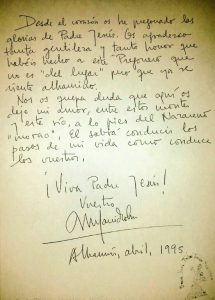 Desde el corazón os he pregonado las
glorias de Padre Jesús. Os agradezco
tanta gentileza y tanto honor que
habéis hecho a este "Pregonero" que
no es "del lugar" pero que ya se
siente alhameño.
Nos os quepa duda que aquí os
dejo mi amor, entre este monte
y este río, a los pies del Nazareno
"morao". El sabrá conducir los
pasos de mi vida como conduce
los vuestros.
¡Viva Padre Jesús!
Vuestro
Alhama, abril, 1995